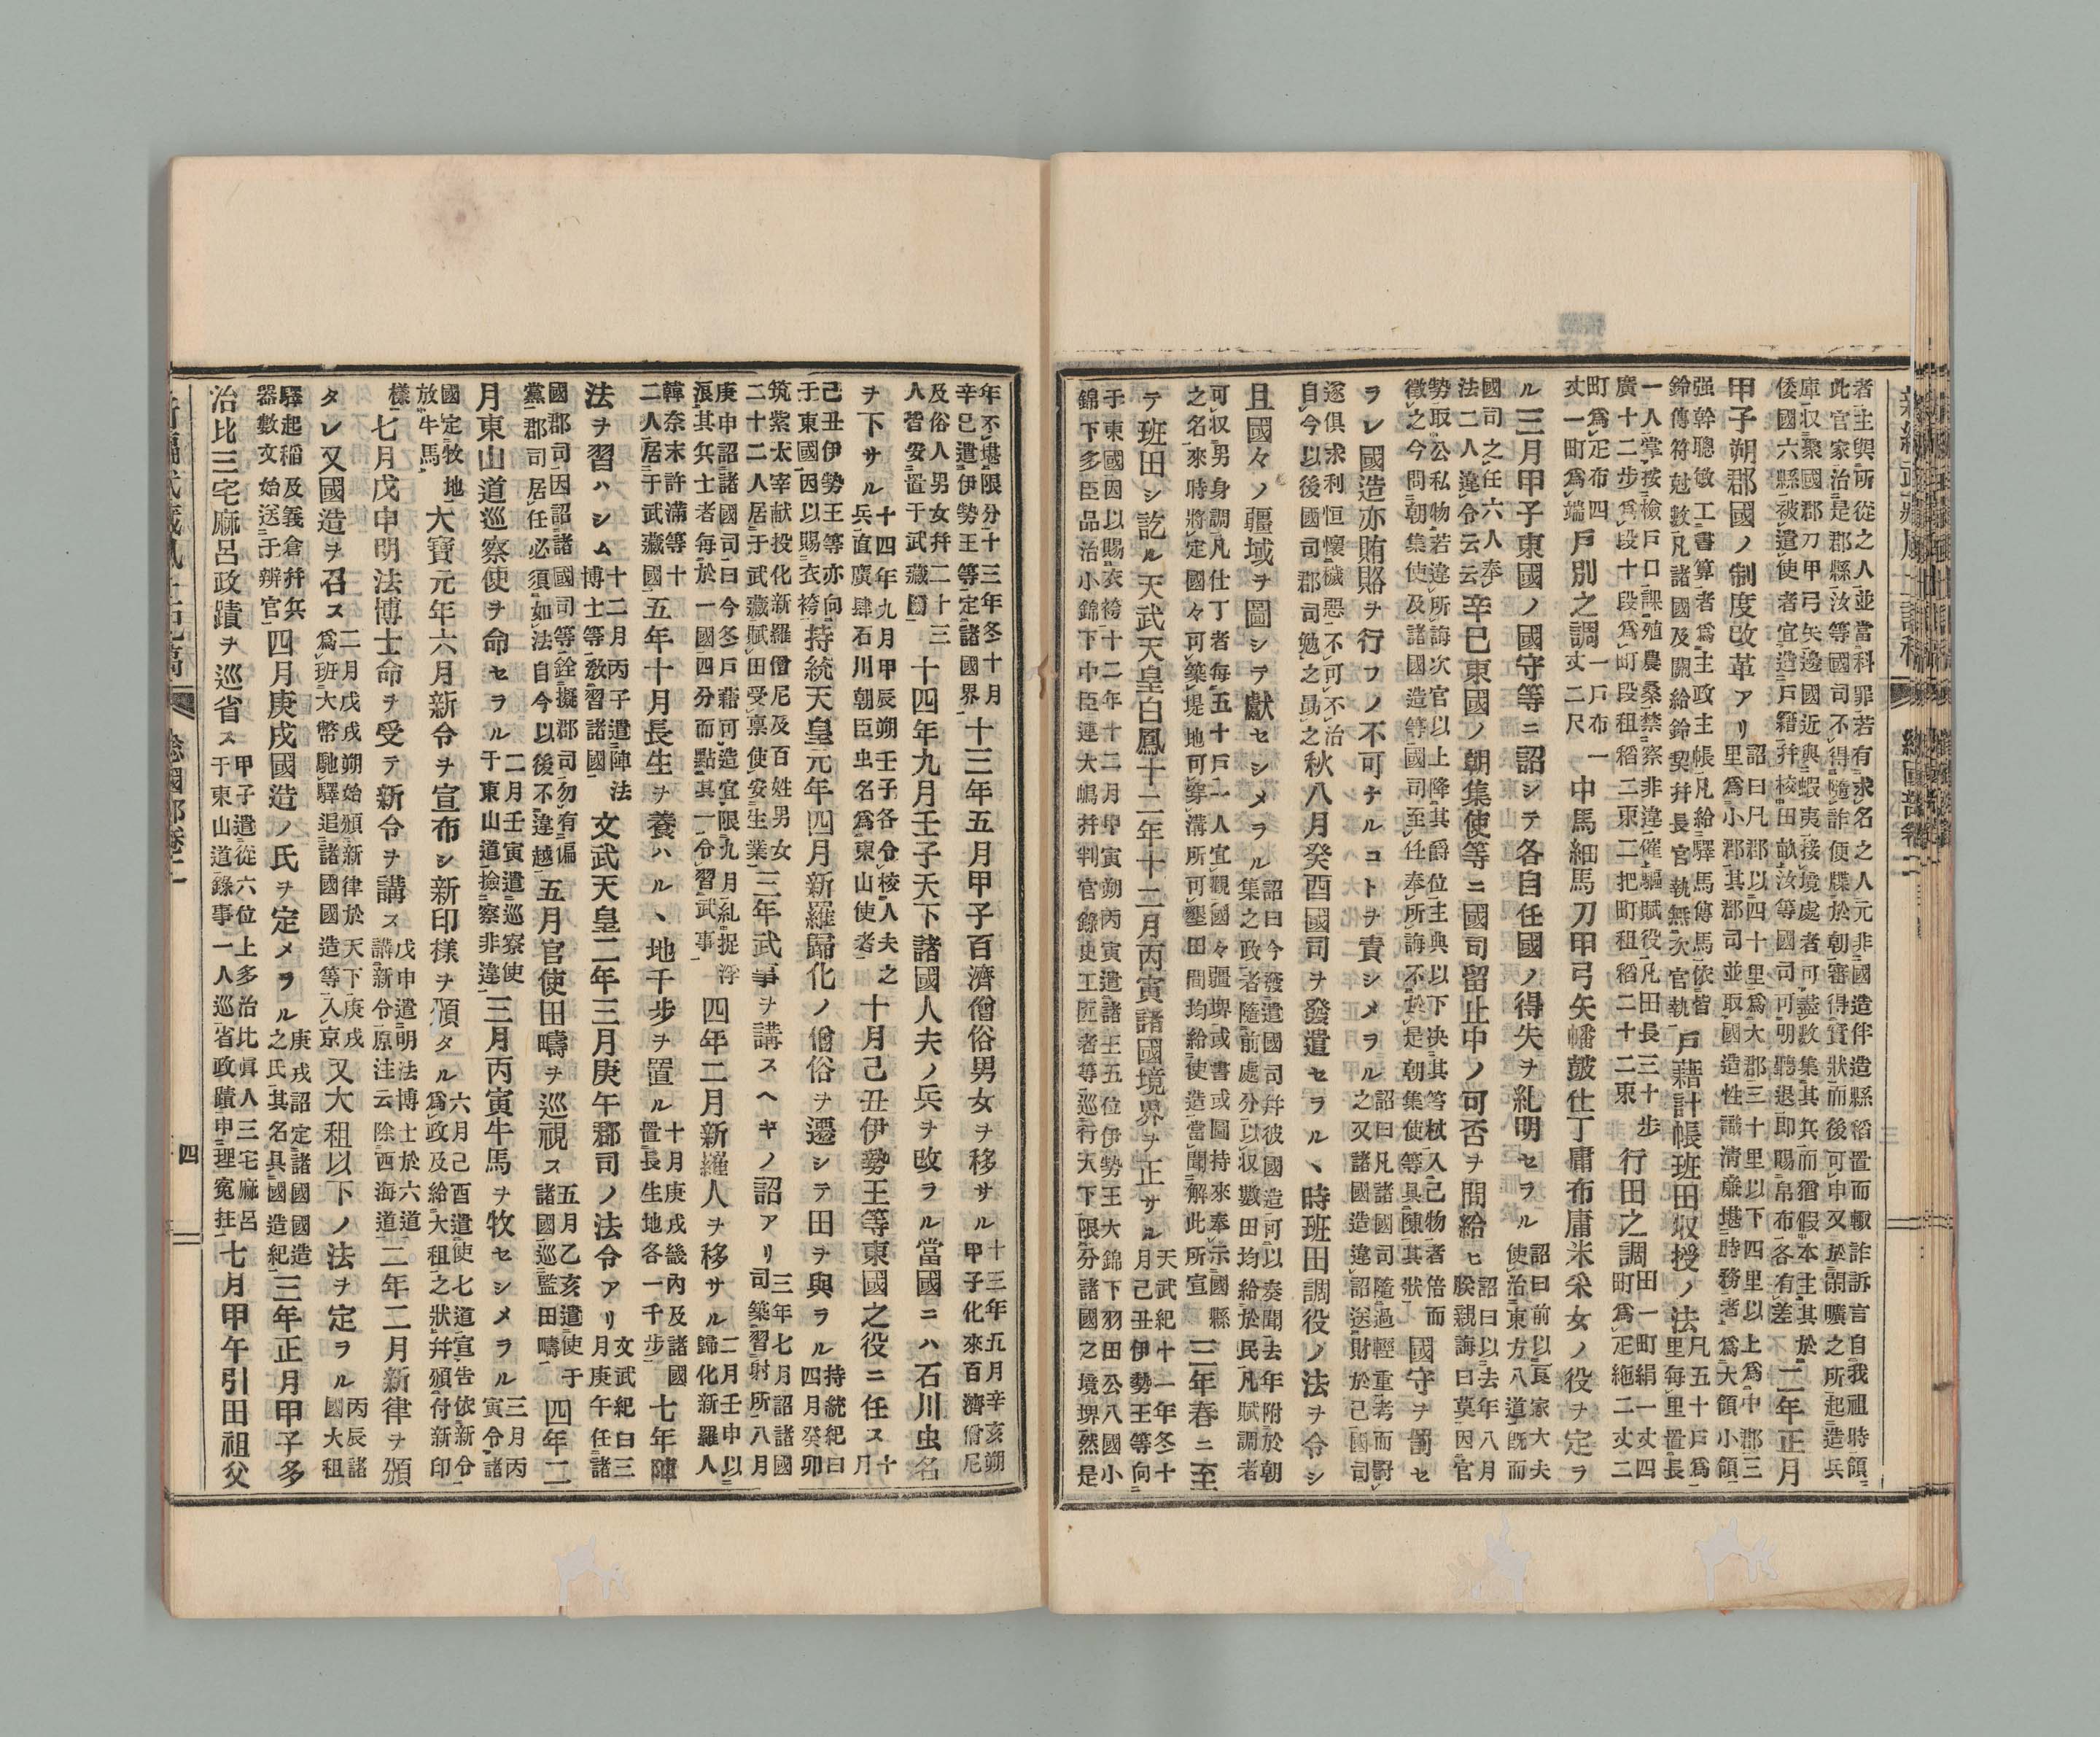 新編武藏風土記稿
總國部卷二
者主與所從之人並當科罪若有求名之人元非國造伴造縣稻置而輙詐訴言自我祖時領
此官家治是郡縣汝等國司不得隨詐便牒於朝審得實狀而後可申又於閑曠之所起造兵
庫收聚國郡刀甲弓矢邊國近與蝦夷接境處者可盡數集其兵而猶假本主其於
倭國六縣被遣使者宜造戸籍幷校田畝汝等國司可明聽退即賜帛布各有差
二年正月
甲子朔郡國ノ制度改革アリ
詔曰凡郡以四十里爲大郡三十里以下四里以上爲中郡三
里爲小郡其郡司並取國造性識淸廉堪時務者爲大領小領
强幹聰敏工書算者爲主政主帳凡給驛馬傳馬依皆
鈴傳符尅數凡諸國及關給鈴契幷長官執無次官執
戸籍計帳班田收授ノ法
凡五十戸爲
里每里置長
一人掌按檢戸口課殖農桑禁察非違催驅賦役凡田長三十步
廣十二步爲段十段爲町段租稻二束二把町租稻二十二束
行田之調
田一町絹一丈四
町爲疋絁二丈二
町爲疋布四
丈一町爲端
戸別之調
一戸布一
丈二尺
中馬細馬刀甲弓矢幡皷仕丁庸布庸米采女ノ役ヲ定ラ
ル三月甲子東國ノ國守等ニ詔シテ各自任國ノ得失ヲ糺明セラル
詔曰前以良家大夫
使治東方八道既而
國司之任六人奉
法二人違令云云
辛巳東國ノ朝集使等ニ國司留止中ノ可否ヲ問給ヒ
詔曰以去年八月
朕親誨曰莫因官
勢取公私物若違所誨次官以上降其爵位主典以下決其笞杖入己物者倍而
徵之今問朝集使及諸國造等國司至任奉所誨不於是朝集使等具陳其狀
國守ヲ罰セ
ラレ國造亦賄賂ヲ行フノ不可ナルコトヲ責シメラル
詔曰凡諸國司隨過輕重考而罸
之又諸國造違詔送財於己國司
遂俱求利恒懷穢惡不可不治
自今以後國司郡司勉之勗之
秋八月癸酉國司ヲ發遣セラルヽ時班田調役ノ法ヲ令シ
且國々ノ疆域ヲ圖シテ獻セシメラル
詔曰今發遣國司幷彼國造可以奏聞去年附於朝
集之政者隨前處分以收數田均給於民凡賦調者
可收男身調凡仕丁者每五十戸一人宜觀國々疆堺或書或圖持來奉示國縣
之名來時將定國々可築堤地可穿溝所可墾田間均給使造當聞解此所宣
三年春ニ至
テ班田シ訖ル天武天皇白鳳十二年十二月丙寅諸國境界ヲ正サル
天武紀十一年冬十
月己丑伊勢王等向
于東國因以賜衣袴十二年十二月甲寅朔丙寅遣諸王五位伊勢王大錦下羽田公八國小
錦下多臣品治小錦下中臣連大嶋幷判官錄史工匠者等巡行天下限分諸國之境堺然是
年不堪限分十三年冬十月
辛巳遣伊勢王等定諸國界
十三年五月甲子百濟僧俗男女ヲ移サル
十三年五月辛亥朔
甲子化來百濟僧尼
及俗人男女幷二十三
人皆安置于武藏國
十四年九月壬子天下諸國人夫ノ兵ヲ改ラル當國ニハ石川虫名
ヲ下サル
十四年九月甲辰朔壬子各令校人夫之
兵直廣肆石川朝臣虫名爲東山使者
十月己丑伊勢王等東國之役ニ任ス
十
月
己丑伊勢王等亦向
于東國因以賜衣袴
持統天皇元年四月新羅歸化ノ僧俗ヲ遷シテ田ヲ與ラル
持統紀曰
四月癸卯
筑紫太宰献投化新羅僧尼及百姓男女
二十二人居于武藏賦田受禀使安生業
三年武事ヲ講スヘキノ詔アリ
三年七月詔諸國
司築習射所八月
庚申詔諸國司曰今冬戸藉可造宜限九月糺捉浮
浪其兵士者每於一國四分而點其一令習武事
四年二月新羅人ヲ移サル
二月壬申以
歸化新羅人
韓奈末許滿等十
二人居于武藏國
五年十月長生ヲ養ハルヽ地千步ヲ置ル
十月庚戌畿內及諸國
置長生地各一千步
七年陣
法ヲ習ハシム
十二月丙子遣陣法
博士等敎習諸國
文武天皇二年三月庚午郡司ノ法令アリ
文武紀曰三
月庚午任諸
國郡司因詔諸國司等銓擬郡司勿有偏
黨郡司居任必須如法自今以後不違越
五月官使田疇ヲ巡視ス
五月乙亥遣使于
諸國巡監田疇
四年二
月東山道巡察使ヲ命セラル
二月壬寅遣巡察使
于東山道撿察非違
三月丙寅牛馬ヲ牧セシメラル
三月丙
寅令諸
國定牧地
放牛馬
大寶元年六月新令ヲ宣布シ新印樣ヲ頒タル
六月己酉遣使七道宣告依新令
爲政及給大租之狀幷頒付新印
樣
七月戊申明法博士命ヲ受テ新令ヲ講ス
戊申遣明法博士於六道
講新令原注云除西海道
二年二月新律ヲ頒
タレ又國造ヲ召ス
二月戊戌朔始頒新律於天下庚戌
爲班大幣馳驛追諸國國造等入京
又大租以下ノ法ヲ定ラル
丙辰諸
國大租
驛起稲及義倉幷兵
器數文始送于辨官
四月庚戌國造ノ氏ヲ定メラル
庚戌詔定諸國國造
之氏其名具國造紀
三年正月甲子多
治比三宅麻呂政蹟ヲ巡省ス
甲子遣從六位上多治比眞人三宅麻呂
于東山道錄事一人巡省政蹟申理寃枉
七月甲午引田祖父
新編武藏風土記稿
總國部卷二
四